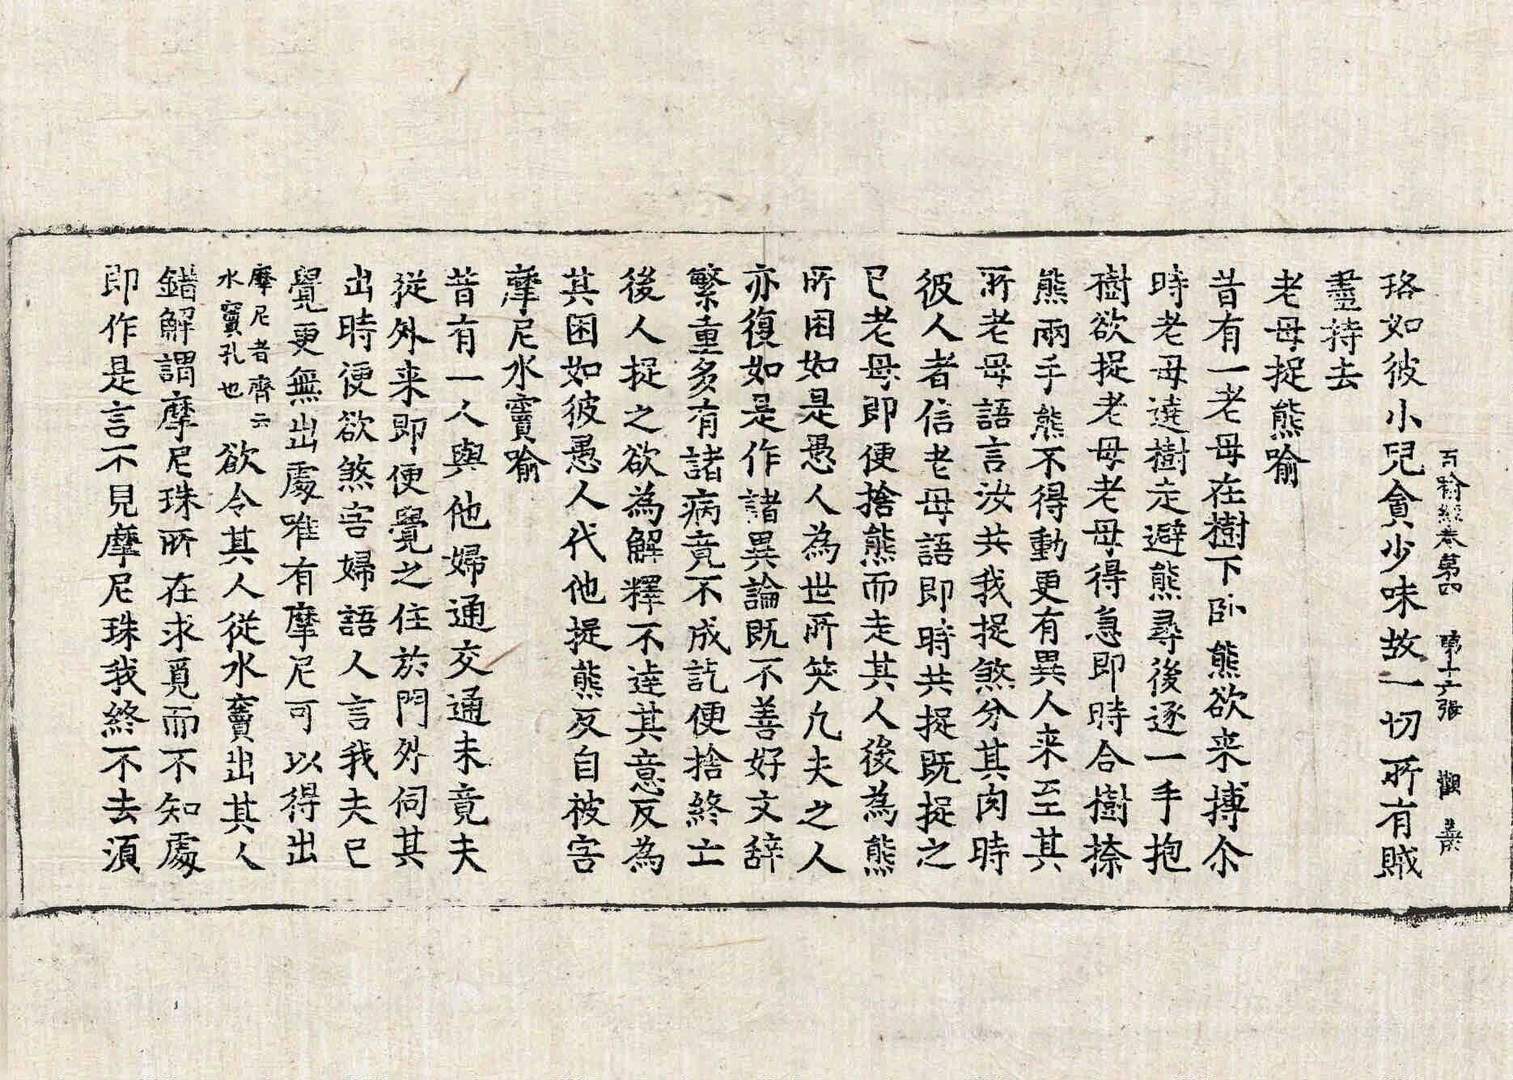 百喻經卷第四　第十六張　觀
珞如彼小兒貪少味故一切所有賊
盡持去
老母捉熊喻
昔有一老母在樹下卧熊欲来搏尒
時老母遶樹走避熊尋後逐一手抱
樹欲捉老母老母得急即時合樹捺
熊兩手熊不得動更有異人来至其
所老母語言汝共我捉煞分其肉時
彼人者信老母語即時共捉既捉之
已老母即便捨熊而走其人後為熊
所困如是愚人為世所笑凡夫之人
亦復如是作諸異論既不善好文辞
繁重多有諸病竟不成訖便捨終亡
後人捉之欲為解釋不達其意反為
其困如彼愚人代他捉熊反自被害
摩尼水竇喻
昔有一人與他婦通交通未竟夫
從外来即便覺之住於門外伺其
出時便欲煞害婦語人言我夫已
覺更無出處唯有摩尼可以得出
摩尼者齊云水竇孔也欲令其人從水竇出其人
錯解謂摩尼珠所在求覓而不知處
即作是言不見摩尼珠我終不去須